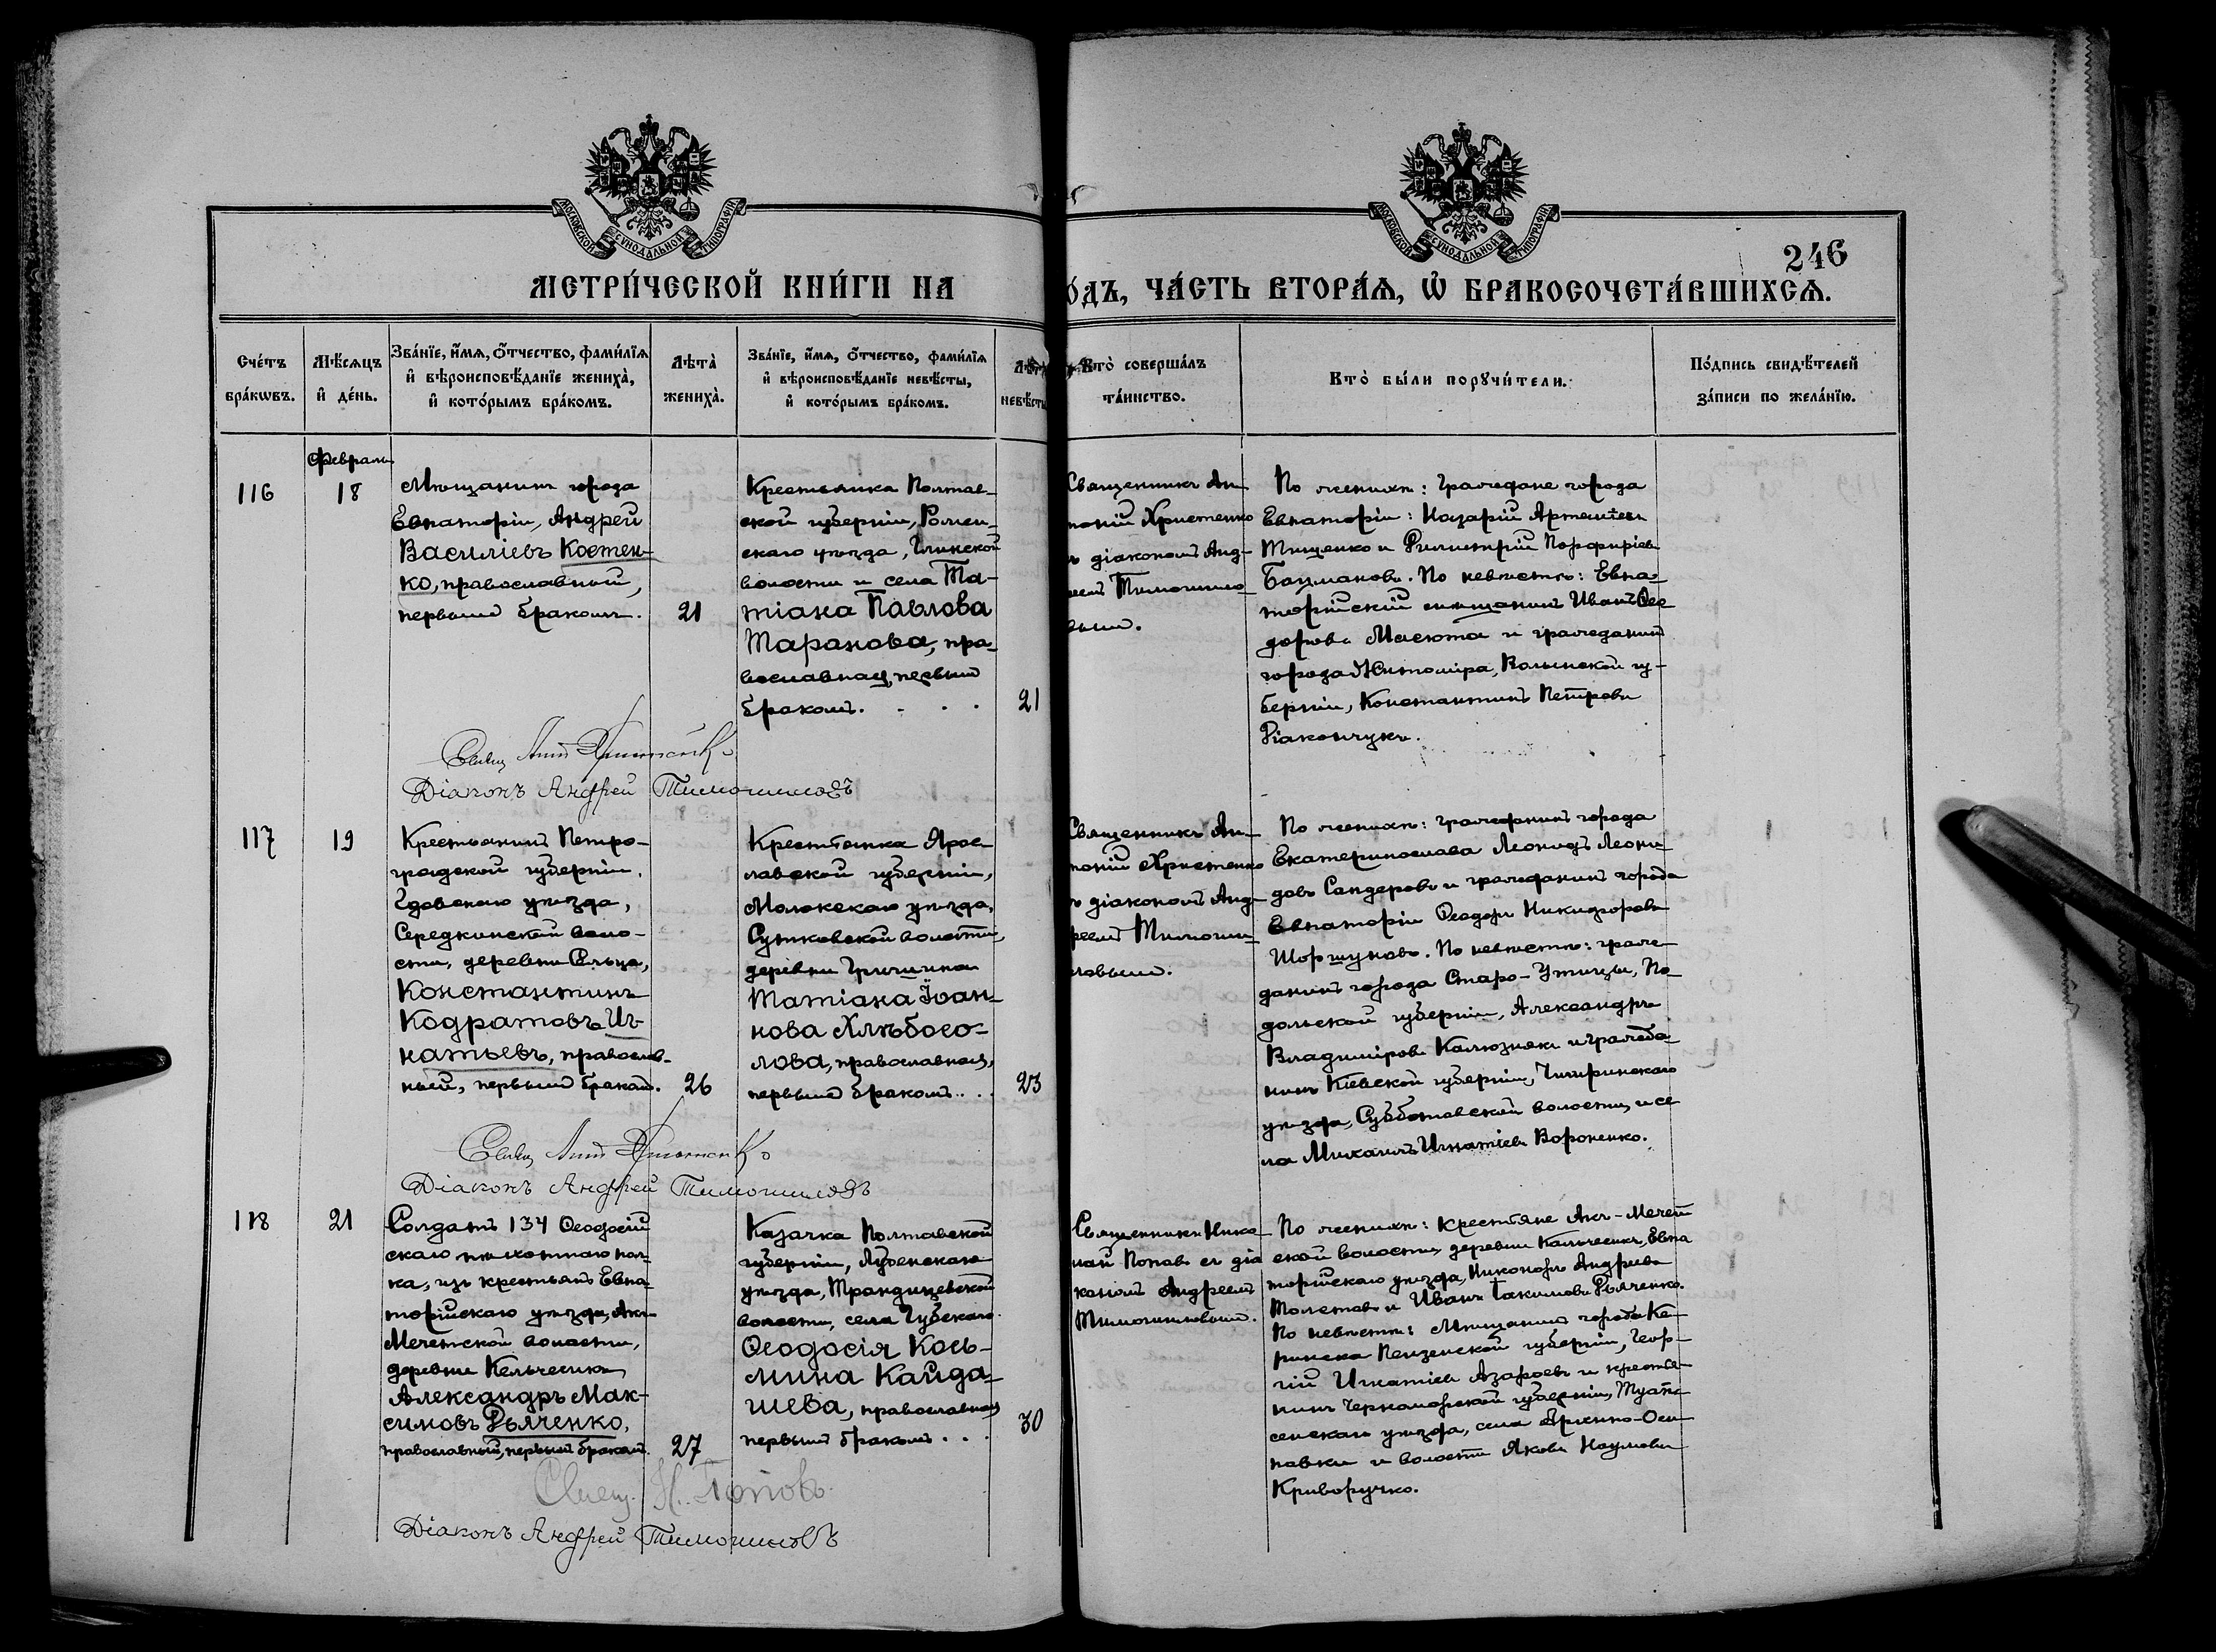 МОСКОВСКОЙ СѴНОДАЛЬНОЙ ТИПОГРАФІИ
МОСКОВСКОЙ СѴНОДАЛЬНОЙ ТИПОГРАФІИ
246
МЕТРИ́ЧЕСКОЙ КНИ́ГИ НА
О́ДЪ, ЧА́СТЬ ВТОРА́Ѧ, Ѡ҆ БРАКОСОЧЕТА́ВШИХСѦ.
Сче́тъ
бра́кѡвъ.
Мѣ́сѧцъ
и҆ де́нь.
Зва́нїе, и҆́мѧ, ѻ҆́тчество, фами́лїѧ
и҆ вѣроисповѣ́данїе жениха̀,
и҆ кото́рымъ бра́комъ.
Лѣта̀
жениха̀.
Зва́нїе, и҆́мѧ, ѻ҆́тчество, фами́лїѧ
и҆ вѣроисповѣ́данїе невѣ́сты,
и҆ кото́рымъ бра́комъ.
Лѣта̀
невѣ́сты
Кто̀ соверша́лъ
та́инство.
Кто̀ бы́ли порꙋчи́тели.
По́дпись свидѣ́телей
за́писи по жела́нїю.
Февраль
116
18
Мѣщанинъ города
Евпаторіи, Андрей
Василіевъ Костен-
ко, православный,
первымъ бракомъ.
21
Крестьянка Полтав-
ской губерніи, Ромен-
скаго уѣзда, Глинской
волости и села Та-
тіана Павлова
Таранова, пра-
вославная, первымъ
бракомъ. . . .
21
Священникъ Ан-
тоній Христенко
съ діакономъ Анд-
реемъ Тимошило-
вымъ.
По женихѣ: Граждане города
Евпаторіи: Назарій Артеміевъ
Тищенко и Порфиріевъ
Бацмановъ. По невѣстѣ: Евпа-
торійскій мѣщанинъ Иванъ Ѳео-
доровъ Масюта и гражданинъ
города Житоміра, Волынской гу-
берніи, Константинъ Петровъ
Діакончукъ.
Свящ Ант Христенко
Діаконъ Андрей Тимошиловъ
117
19
Крестьянинъ Петро-
градской губерніи,
Гдовскаго уѣзда,
Середкинской воло-
сти, деревни Сельца,
Константинъ
Кодратовъ Иг-
натьевъ, православ-
ный, первымъ бракомъ.
26
Крестьянка Яро-
славской губерніи,
Мологскаго уѣзда,
Сутковской волости,
деревни Гришина
Татіана Іоан-
нова Хлѣбосо-
лова, православная,
первымъ бракомъ. . .
23
Священникъ Ан-
тоній Христенко
съ діакономъ Анд-
реемъ Тимоши-
ловымъ.
По женихѣ: гражданинъ города
Екатеринослава Леонидъ Леони-
довъ Сандеровъ и гражданинъ города
Евпаторіи Ѳеодоръ Никифоровъ
Шоршуновъ. По невѣстѣ: граж-
данинъ города Старо-Ушицы, По-
дольской губерніи, Александръ
Владиміровъ Калюзнякъ и гражда-
нинъ Кіевской губерніи, Чигиринскаго
уѣзда, Субботовской волости и се-
ла Михаилъ Игнатіевъ Вороненко.
Свящ Ант Христенко
Діаконъ Андрей Тимошиловъ
118
21
Солдатъ 134 Ѳеодосій
скаго пѣхотнаго пол-
ка, изъ крестьянъ Евпа-
торійскаго уѣзда, Акъ-
Мечетской волости,
деревни Кельчесикъ
Александръ Мак-
симовъ Дьяченко,
православный, первымъ бракомъ.
27
Казачка Полтавской
губерніи, Лубенскаго
уѣзда, волости, села Губскаго
Ѳеодосія Козь-
мина Кайда-
шева, православная
первымъ бракомъ. . .
30
Священникъ Нико-
лай Поповъ съ діа
кономъ Андреемъ
Тимошиловымъ.
По женихѣ: крестьяне Акъ-Мечет
ской волости деревни Кельчесикъ, Евпа
торійскаго уѣзда, Никоноръ Андреевъ
и Иванъ Іакимовъ Дьяченко.
По невѣстѣ: Мѣщанинъ города Ке-
ренска Пензенской губерніи, Геор-
гій Игнатіевъ Азароевъ и крестья-
нинъ Черноморской губерніи, Туапсе
сенскаго уѣзда, села Армяно-Оси-
повки и волости Яковъ Наумовъ
Криворучко.
Свящ. Н. Поповъ.
Діаконъ Андрей Тимошиловъ